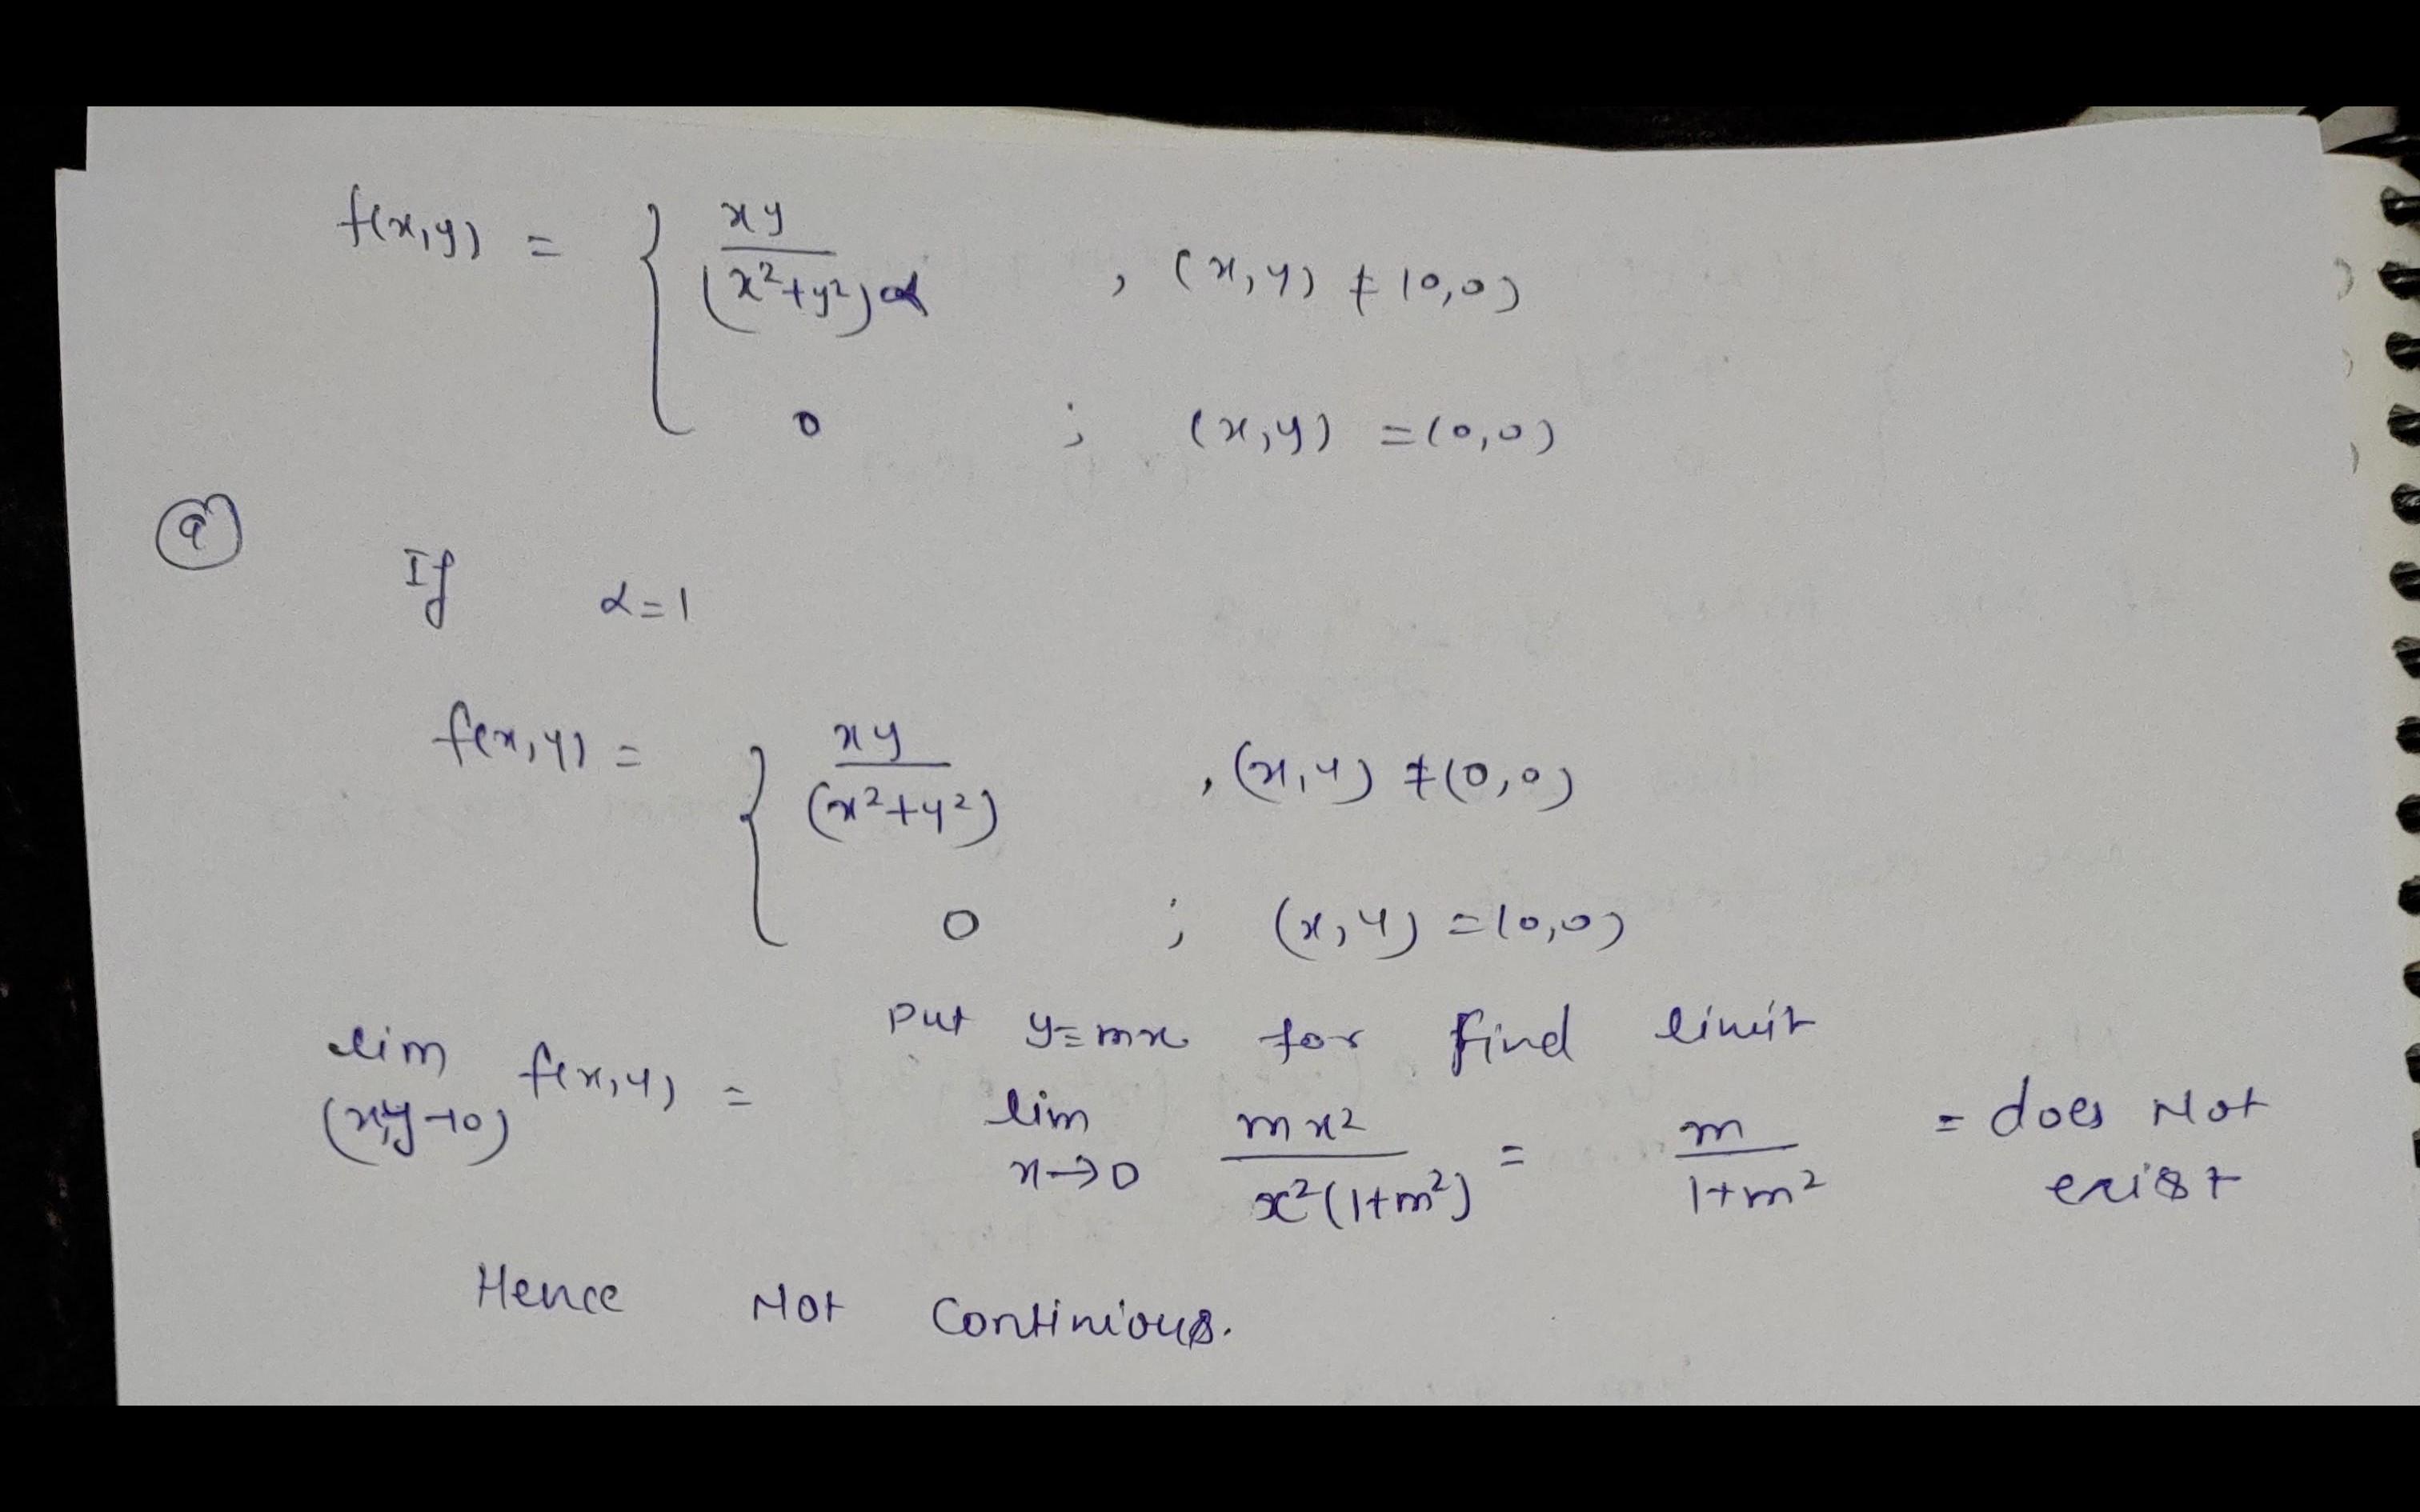 f(x,y) = { xy / (x²+y²)α , (x,y) ≠ (0,0)
0 ; (x,y) = (0,0)
(a)
If α=1
f(x,y) = { xy / (x²+y²) , (x,y) ≠ (0,0)
0 ; (x,y) = (0,0)
Put y=mx for find limit
lim (x,y→0) f(x,y) = lim x→0 mx² / x²(1+m²) = m / 1+m² = does Not exist
Hence Not Continious.